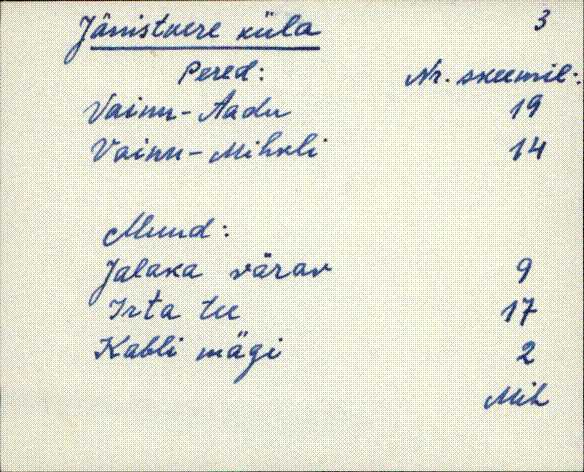 Jänistvere küla 3
Pered: Nr. skeemil:
Vainu-Aadu 19
Vainu-Mihkli 14
Muud:
Jalaka värav 9
Irta tee 17
Kabli mägi 2
Mih